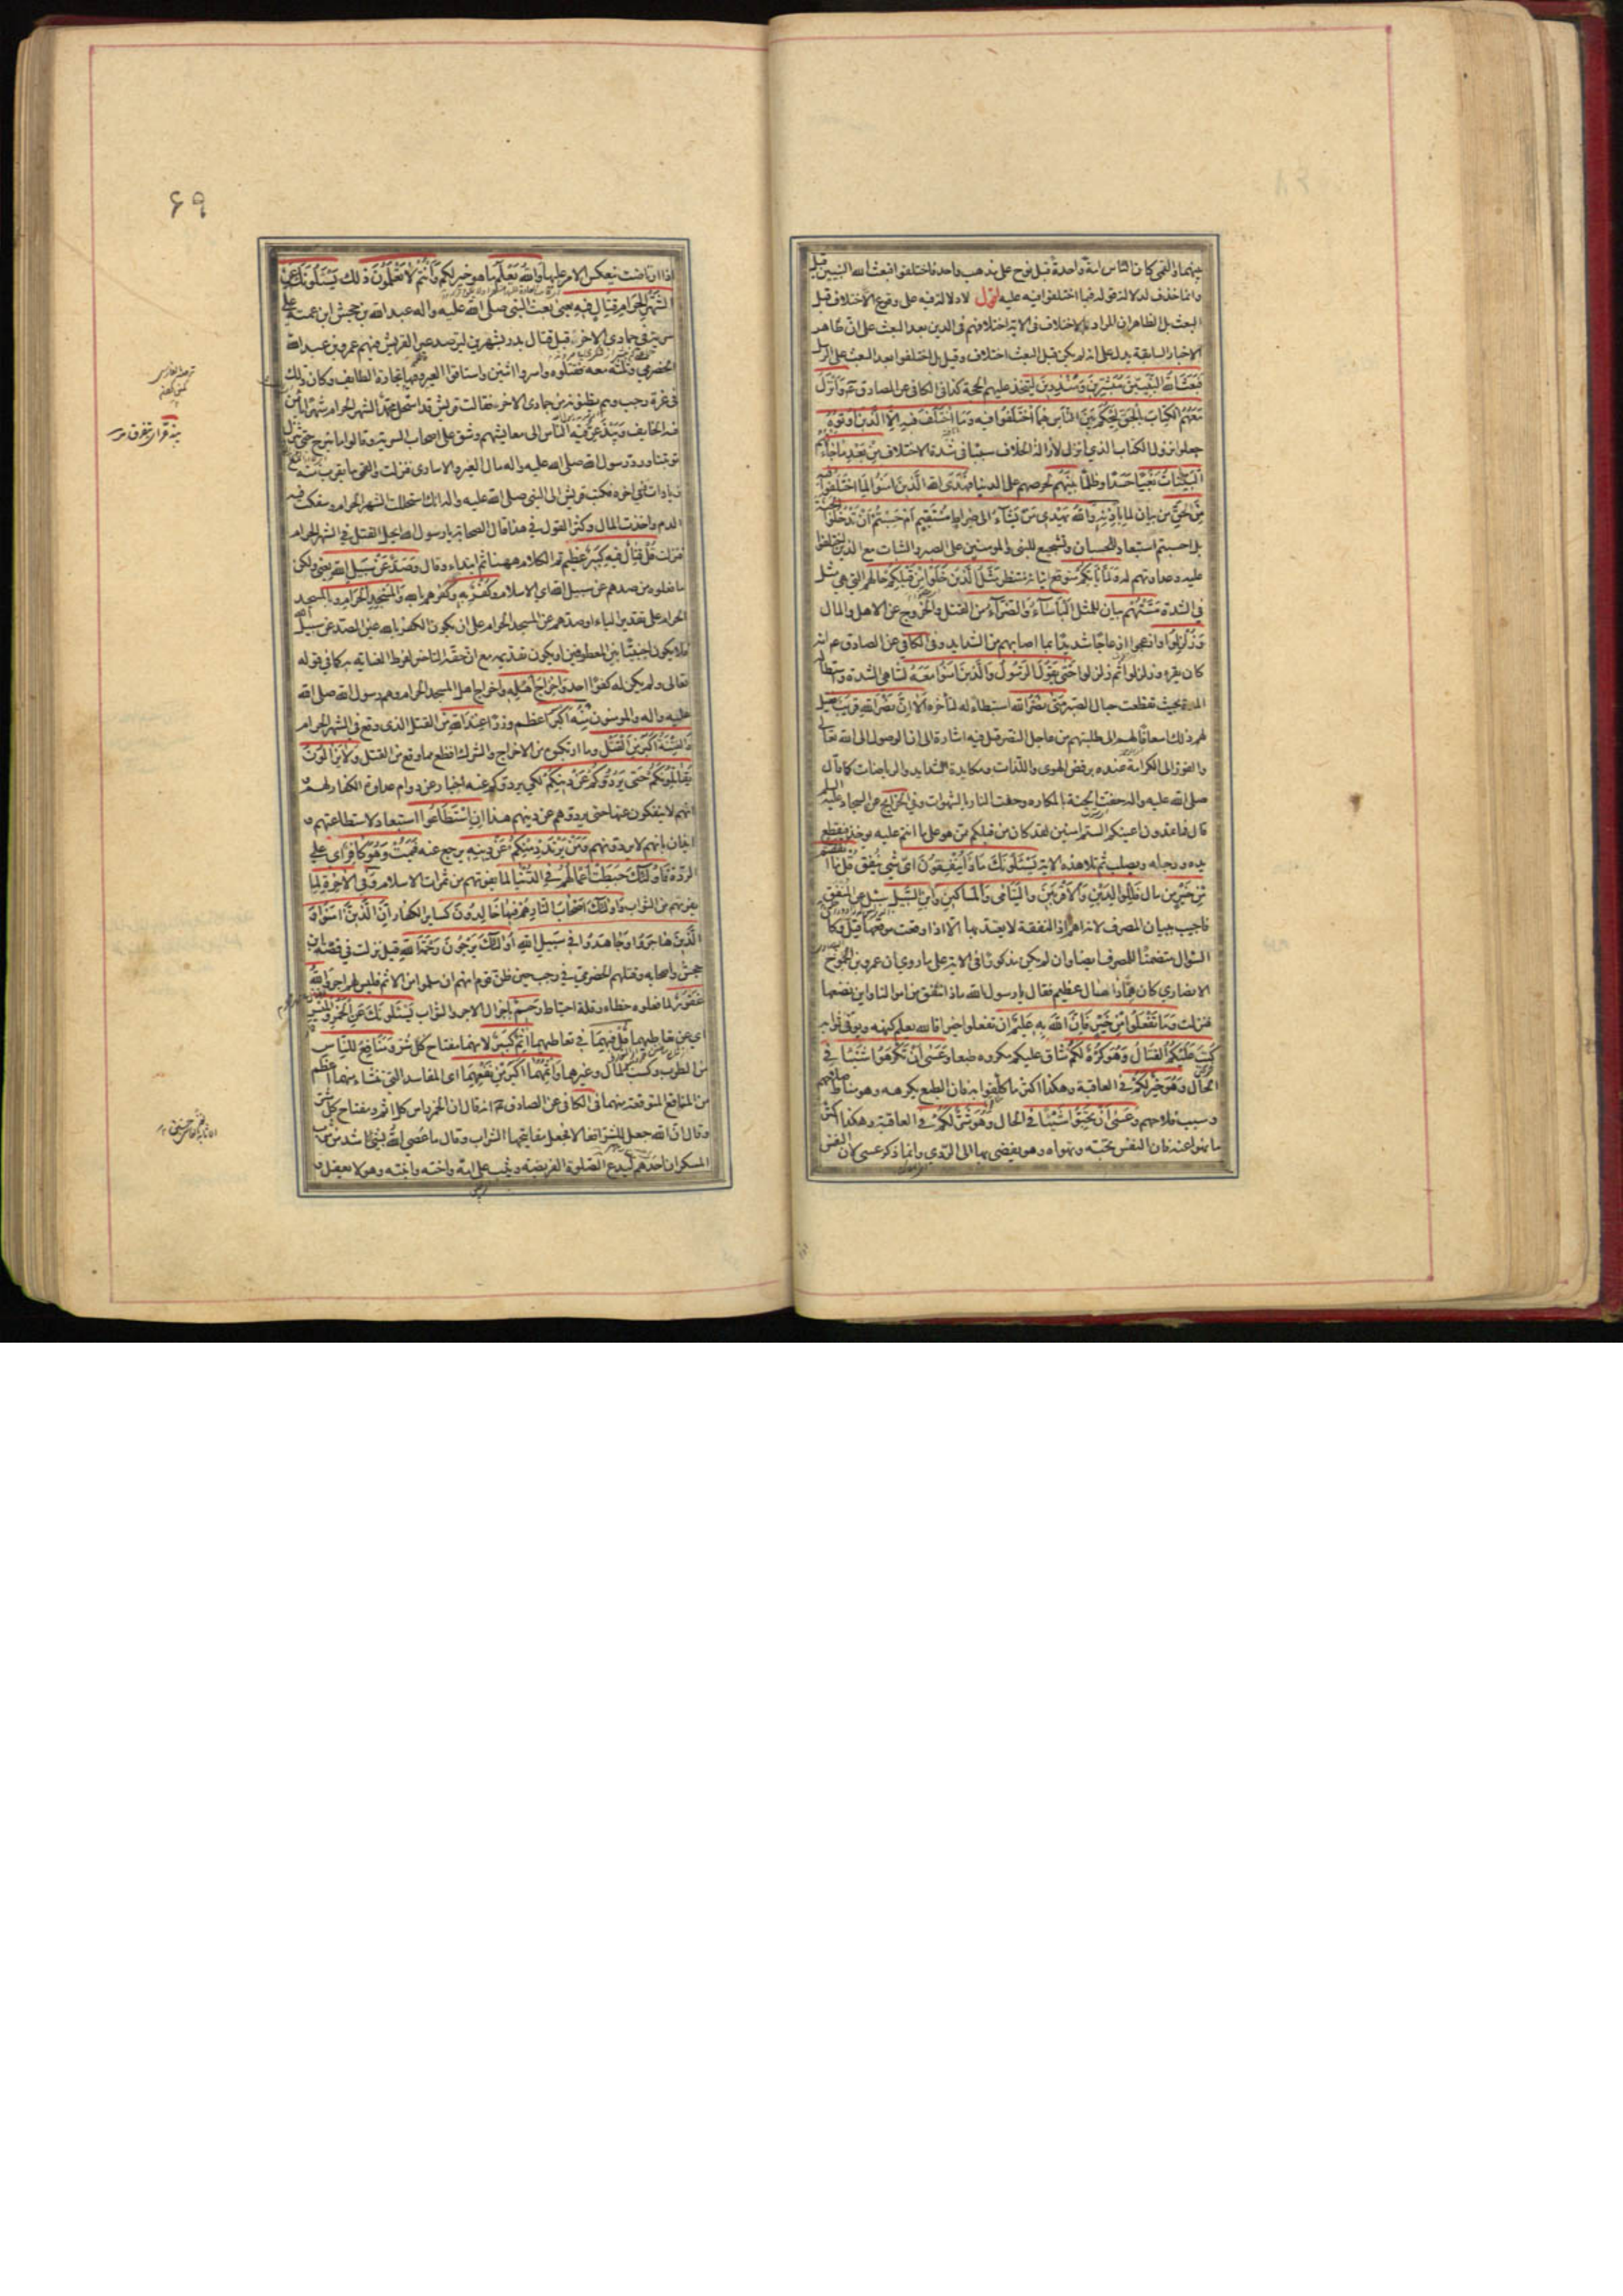 بينهما ذكر القمي كان الناس امة واحدة قبل نوح على مذهب واحد فاختلفوا فبعث الله النبيين قبل
وانما حذف لدلالة قوله فيما اختلفوا فيه عليه اقول لا دلالة فيه على وقوع الاختلاف قبل
البعث بل الظاهر ان المراد بالاختلاف في الاية اختلافهم في الدين بعد البعث على ان ظاهر
الاخبار السابقة يدل على انه لم يكن قبل البعث اختلاف وقيل بل اختلفوا بعد البعث على الرسل
فَبَعَثَ اللهُ النَّبِيّينَ مُبَشِّرينَ وَمُنْذِرينَ ليتخذ عليهم الحجة كذا في الكافي عن الصادق ع وَاَنْزَلَ
مَعَهُمُ الْكِتابَ بِالْحَقِّ لِيَحْكُمَ بَيْنَ النّاسِ فيمَا اخْتَلَفُوا فيهِ وَمَا اخْتَلَفَ فيهِ اِلّا الَّذينَ اُوتُوهُ
جعلوا نزول الكتاب الذي انزل لازالة الخلاف سببا في شدة الاختلاف مِنْ بَعْدِ ما جاءَتْهُمُ
الْبَيِّناتُ بَغْيًا حسدا وظلما بَيْنَهُمْ لحرصهم على الدنيا فَهَدَى اللهُ الَّذينَ امَنُوا لِمَا اخْتَلَفُوا فيهِ
مِنَ الْحَقِّ من بيان لما بِاِذْنِهِ وَاللهُ يَهْدي مَنْ يَشاءُ اِلى صِراطٍ مُسْتَقيمٍ اَمْ حَسِبْتُمْ اَنْ تَدْخُلُوا الْجَنَّةَ
بل احسبتم استبعاد للحسبان وتشجيع للنبي والمؤمنين على الصبر والثبات مع الذين اختلفوا
عليه وعداوتهم له وَلَمّا يَأْتِكُمْ متوقع اتيانه منتظر مَثَلُ الَّذينَ خَلَوْا مِنْ قَبْلِكُمْ حالهم التي هي مثل
في الشدة مَسَّتْهُمُ بيان للمثل الْبَأْساءُ وَالضَّرّاءُ من القتل والخروج عن الاهل والمال
وَزُلْزِلُوا وازعجوا ازعاجا شديدا بما اصابهم من الشدايد وفي الكافي عن الصادق ع انه
كان يقرء وزلزلوا ثم زلزلوا حَتّى يَقُولَ الرَّسُولُ وَالَّذينَ امَنُوا مَعَهُ لتناهي الشدة واستطالة
المدة بحيث تقطعت حبال الصبر مَتى نَصْرُ اللهِ استبطاء له لتأخره اَلا اِنَّ نَصْرَ اللهِ قَريبٌ فقيل
لهم ذلك اسعافا لهم الى طلبتهم من عاجل النصر قيل فيه اشارة الى ان الوصول الى الله تعالى
والفوز الى الكرامة عنده برفض الهوى واللذات ومكابدة الشدايد والرياضات كما قال
صلى الله عليه واله حفت الجنة بالمكاره وحفت النار بالشهوات وفي الخرايج عن السجاد عليه السلم
قال فما تمدون اعينكم الستم امنين لقد كان من قبلكم ممن هو على ما انتم عليه يوخذ فيقطع
يده ورجله ويصلب ثم تلا هذه الاية يَسْئَلُونَكَ ماذا يُنْفِقُونَ اي شئ ينفق قُلْ ما اَنْفَقْتُمْ
مِنْ خَيْرٍ من مال فَلِلْوالِدَيْنِ وَالْاَقْرَبينَ وَالْيَتامى وَالْمَساكينِ وَابْنِ السَّبيلِ سئل عن المنفق
فاجيب ببيان المصرف لانه اهم اذ النفقة لا يعتد بها الا اذا وقعت موقعها قيل وكان
السؤال متضمنا للمصرف ايضا وان لم يكن مذكورا في الاية على ما روي ان عمرو بن الجموح
الانصاري كان همّا ذا مال عظيم فقال يا رسول الله ماذا ننفق من اموالنا واين نضعها
فنزلت وَما تَفْعَلُوا مِنْ خَيْرٍ فَاِنَّ اللهَ بِهِ عَليمٌ ان تفعلوا خيرا فالله يعلم كنهه ويوفي ثوابه
كُتِبَ عَلَيْكُمُ الْقِتالُ وَهُوَ كُرْهٌ لَكُمْ شاق عليكم مكروه طبعا وَعَسى اَنْ تَكْرَهُوا شَيْئًا في
الحال وَهُوَ خَيْرٌ لَكُمْ في العاقبة وهكذا اكثر ما كلفوا به فان الطبع يكرهه وهو مناط صلاحهم
وسبب فلاحهم وَعَسى اَنْ تُحِبُّوا شَيْئًا في الحال وَهُوَ شَرٌّ لَكُمْ في العاقبة وهكذا اكثر
ما نهوا عنه فان النفس تحبه وتهواه وهو يفضي بها الى الردي وانما ذكر عسى لان النفس
۶۹
اذا ارتاضت ينعكس الامر عليها وَاللهُ يَعْلَمُ ما هو خير لكم وَاَنْتُمْ لا تَعْلَمُونَ ذلك يَسْئَلُونَكَ عَنِ
الشَّهْرِ الْحَرامِ قِتالٍ فيهِ يعني بعث النبي صلى الله عليه واله عبد الله بن جحش ابن عمته على
سرية في جمادى الاخرة قبل قتال بدر بشهرين ليترصد عير القريش فيهم عمرو بن عبد الله
الحضرمي وثلثة معه فقتلوه واسروا اثنين واستاقوا العير وفيها تجارة الطايف وكان ذلك
في غرة رجب وهم يظنونه من جمادى الاخرة فقالت قريش قد استحل محمد الشهر الحرام شهرا يأمن
فيه الخايف ويبذعر فيه الناس الى معايشهم وشق على اصحاب السرية وقالوا ما نبرح حتى تنزل
توبتنا ورد رسول الله صلى الله عليه واله مال العير والاسارى فنزلت والقمي ما يقرب منه مع
زيادات في اخره فكتب قريش الى النبي صلى الله عليه واله انك استحللت الشهر الحرام وسفكت فيه
الدم واخذت المال وكثر القول في هذا فقال الصحابة يا رسول الله ايحل القتل في الشهر الحرام
فنزلت قُلْ قِتالٌ فيهِ كَبيرٌ عظيم تم الكلام ههنا ثم ابتداء وقال وَصَدٌّ عَنْ سَبيلِ اللهِ يعني ولكن
ما فعلوه من صدهم عن سبيل الله اي الاسلام وَكُفْرٌ بِهِ وكفرهم بالله وَالْمَسْجِدِ الْحَرامِ وبالمسجد
الحرام على تقدير الباء او صدهم عن المسجد الحرام على ان يكون الكفر بالله عين الصد عن سبيل الله
فلا يكون اجنبيا بين المعطوفين او يكون تقديمه مع ان حقه التاخير لفرط العناية به كما في قوله
تعالى ولم يكن له كفوا احد وَاِخْراجُ اَهْلِهِ واخراج اهل المسجد الحرام وهم رسول الله صلى الله
عليه واله والمومنون مِنْهُ اَكْبَرُ اعظم وزرا عِنْدَ اللهِ من القتل الذي وقع في الشهر الحرام
وَالْفِتْنَةُ اَكْبَرُ مِنَ الْقَتْلِ وما ارتكبوه من الاخراج والشرك افظع مما وقع من القتل وَلا يَزالُونَ
يُقاتِلُونَكُمْ حَتّى يَرُدُّوكُمْ عَنْ دينِكُمْ لكي يردوكم عنه اخبار عن دوام عداوة الكفار لهم و
انهم لا ينفكون عنها حتى يردوهم عن دينهم هذا اِنِ اسْتَطاعُوا استبعاد لاستطاعتهم و
ايذان بانهم لا يردونهم وَمَنْ يَرْتَدِدْ مِنْكُمْ عَنْ دينِهِ يرجع عنه فَيَمُتْ وَهُوَ كافِرٌ اي على
الردة فَاُولئِكَ حَبِطَتْ اَعْمالُهُمْ فِي الدُّنْيا لما يفوتهم من ثمرات الاسلام وَفي الْاخِرَةِ لما
يفوتهم من الثواب وَاُولئِكَ اَصْحابُ النّارِ هُمْ فيها خالِدُونَ كساير الكفار اِنَّ الَّذينَ امَنُوا وَ
الَّذينَ هاجَرُوا وَجاهَدُوا في سَبيلِ اللهِ اُولئِكَ يَرْجُونَ رَحْمَتَ اللهِ قيل نزلت في قصة ابن
جحش واصحابه وقتلهم الحضرمي في رجب حين ظن قوم انهم ان سلموا من الاثم فليس لهم اجر وَاللهُ
غَفُورٌ لما فعلوه خطاء وقلة احتياط رَحيمٌ باجزال الاجر والثواب يَسْئَلُونَكَ عَنِ الْخَمْرِ وَالْمَيْسِرِ
اي عن تعاطيهما قُلْ فيهِما في تعاطيهما اِثْمٌ كَبيرٌ لانهما مفتاح كل شر وَمَنافِعُ لِلنّاسِ
من الطرب وكسب المال وغيرهما وَاِثْمُهُما اَكْبَرُ مِنْ نَفْعِهِما اي المفاسد التي تنشاء منهما اعظم
من المنافع المتوقعة منهما في الكافي عن الصادق ع انه قال ان الخمر راس كل اثم ومفتاح كل شر
وقال ان الله جعل للشر اقفالا فجعل مفاتيحها الشراب وقال ما عصي الله بشئ اشد من شرب
المسكر ان احدهم ليدع الصلوة الفريضة ويثب على امه واخته وابنته وهو لا يعقل و